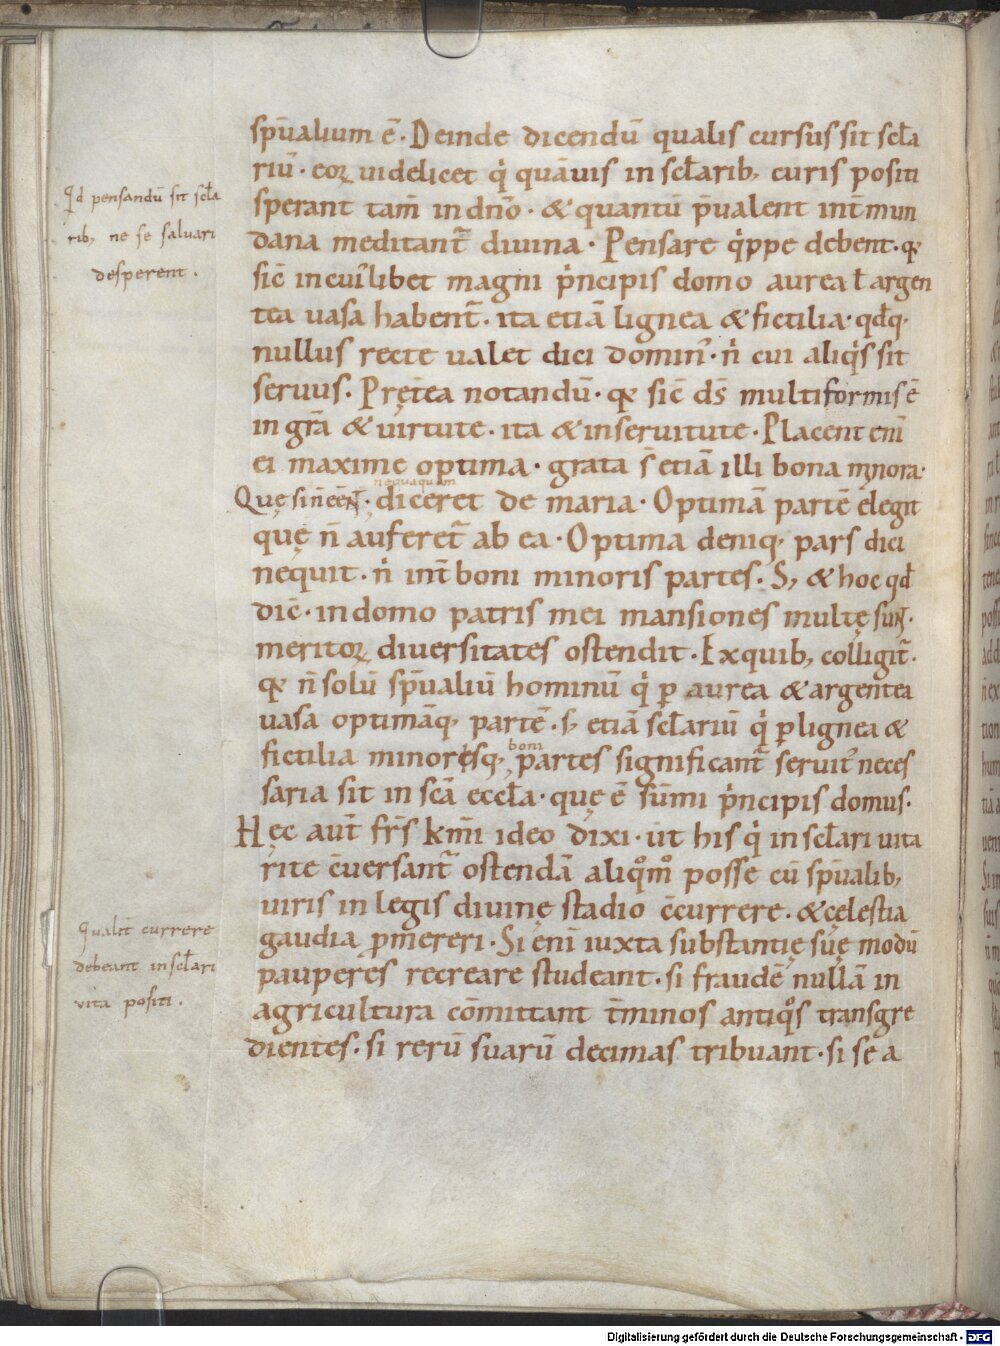 sp̄ualium ē. Deinde dicendū qualis cursus sit scła
riū. eoꝝ uidelicet q̇ quāuis in scłarib; curis positi
Qd pensandū sit scła
rib; ne se saluari
desperent.
sperant tam̄ in dn̄o. & quantū p̄ualent int̄ mun
dana meditant᷑ diuina. Pensare q̇ppe debent. qꝫ
sic̄ in cui᷑libet magni ṗncipis domo aurea ł argen
tea uasa habent᷑. ita etiā lignea & fictilia. qđq;
nullus recte ualet dici domin᷒. ṅ cui aliq̇s sit
seruus. Pręt̄ea notandū. qꝫ sic̄ dს multiformis ē
in gr̄a & uirtute. ita & in seruitute. Placent eni̅
ei maxime optima. grata s̄ etiā illi bona minora.
Quę si n̄ eēnt. nequaquam diceret de maria. Optimā partē elegit
quę n̄ auferet᷑ ab ea. Optima deniq; pars dici
nequit. ṅ int̄ boni minoris partes. S; & hoc qđ
dic̄. in domo patris mei mansiones multę sunt.
meritoꝝ diuersitates ostendit. Ex quib; colligit᷑.
qꝫ n̄ solū sp̄ualiū hominū q̇ ꝑ aurea & argentea
uasa optimāq; partē. s; etiā scłariū q̇ ꝑ lignea &
fictilia minoresq; boni partes significant᷑ seruit᷒ neces
saria sit in sc̄a eccła. quę ē sūmi ṗncipis domus.
Hęc aut̄ fr̄s km̄i ideo dixi. ut his q̇ in scłari uita
rite c̄uersant᷑ ostendā aliq̊m̊ posse cū sp̄ualib;
uiris in legis diuinę stadio c̄currere. & celestia
Qualit̄ currere
debeant in scłari
vita positi.
gaudia p̄mereri. Si eni̅ iuxta substantię suę modū
pauperes recreare studeant. si fraudē nullā in
agricultura cōmittant t̄minos antiq̊s transgre
dientes. si rerū suarū decimas tribuant. si se a
Digitalisierung gefördert durch die Deutsche Forschungsgemeinschaft - DFG